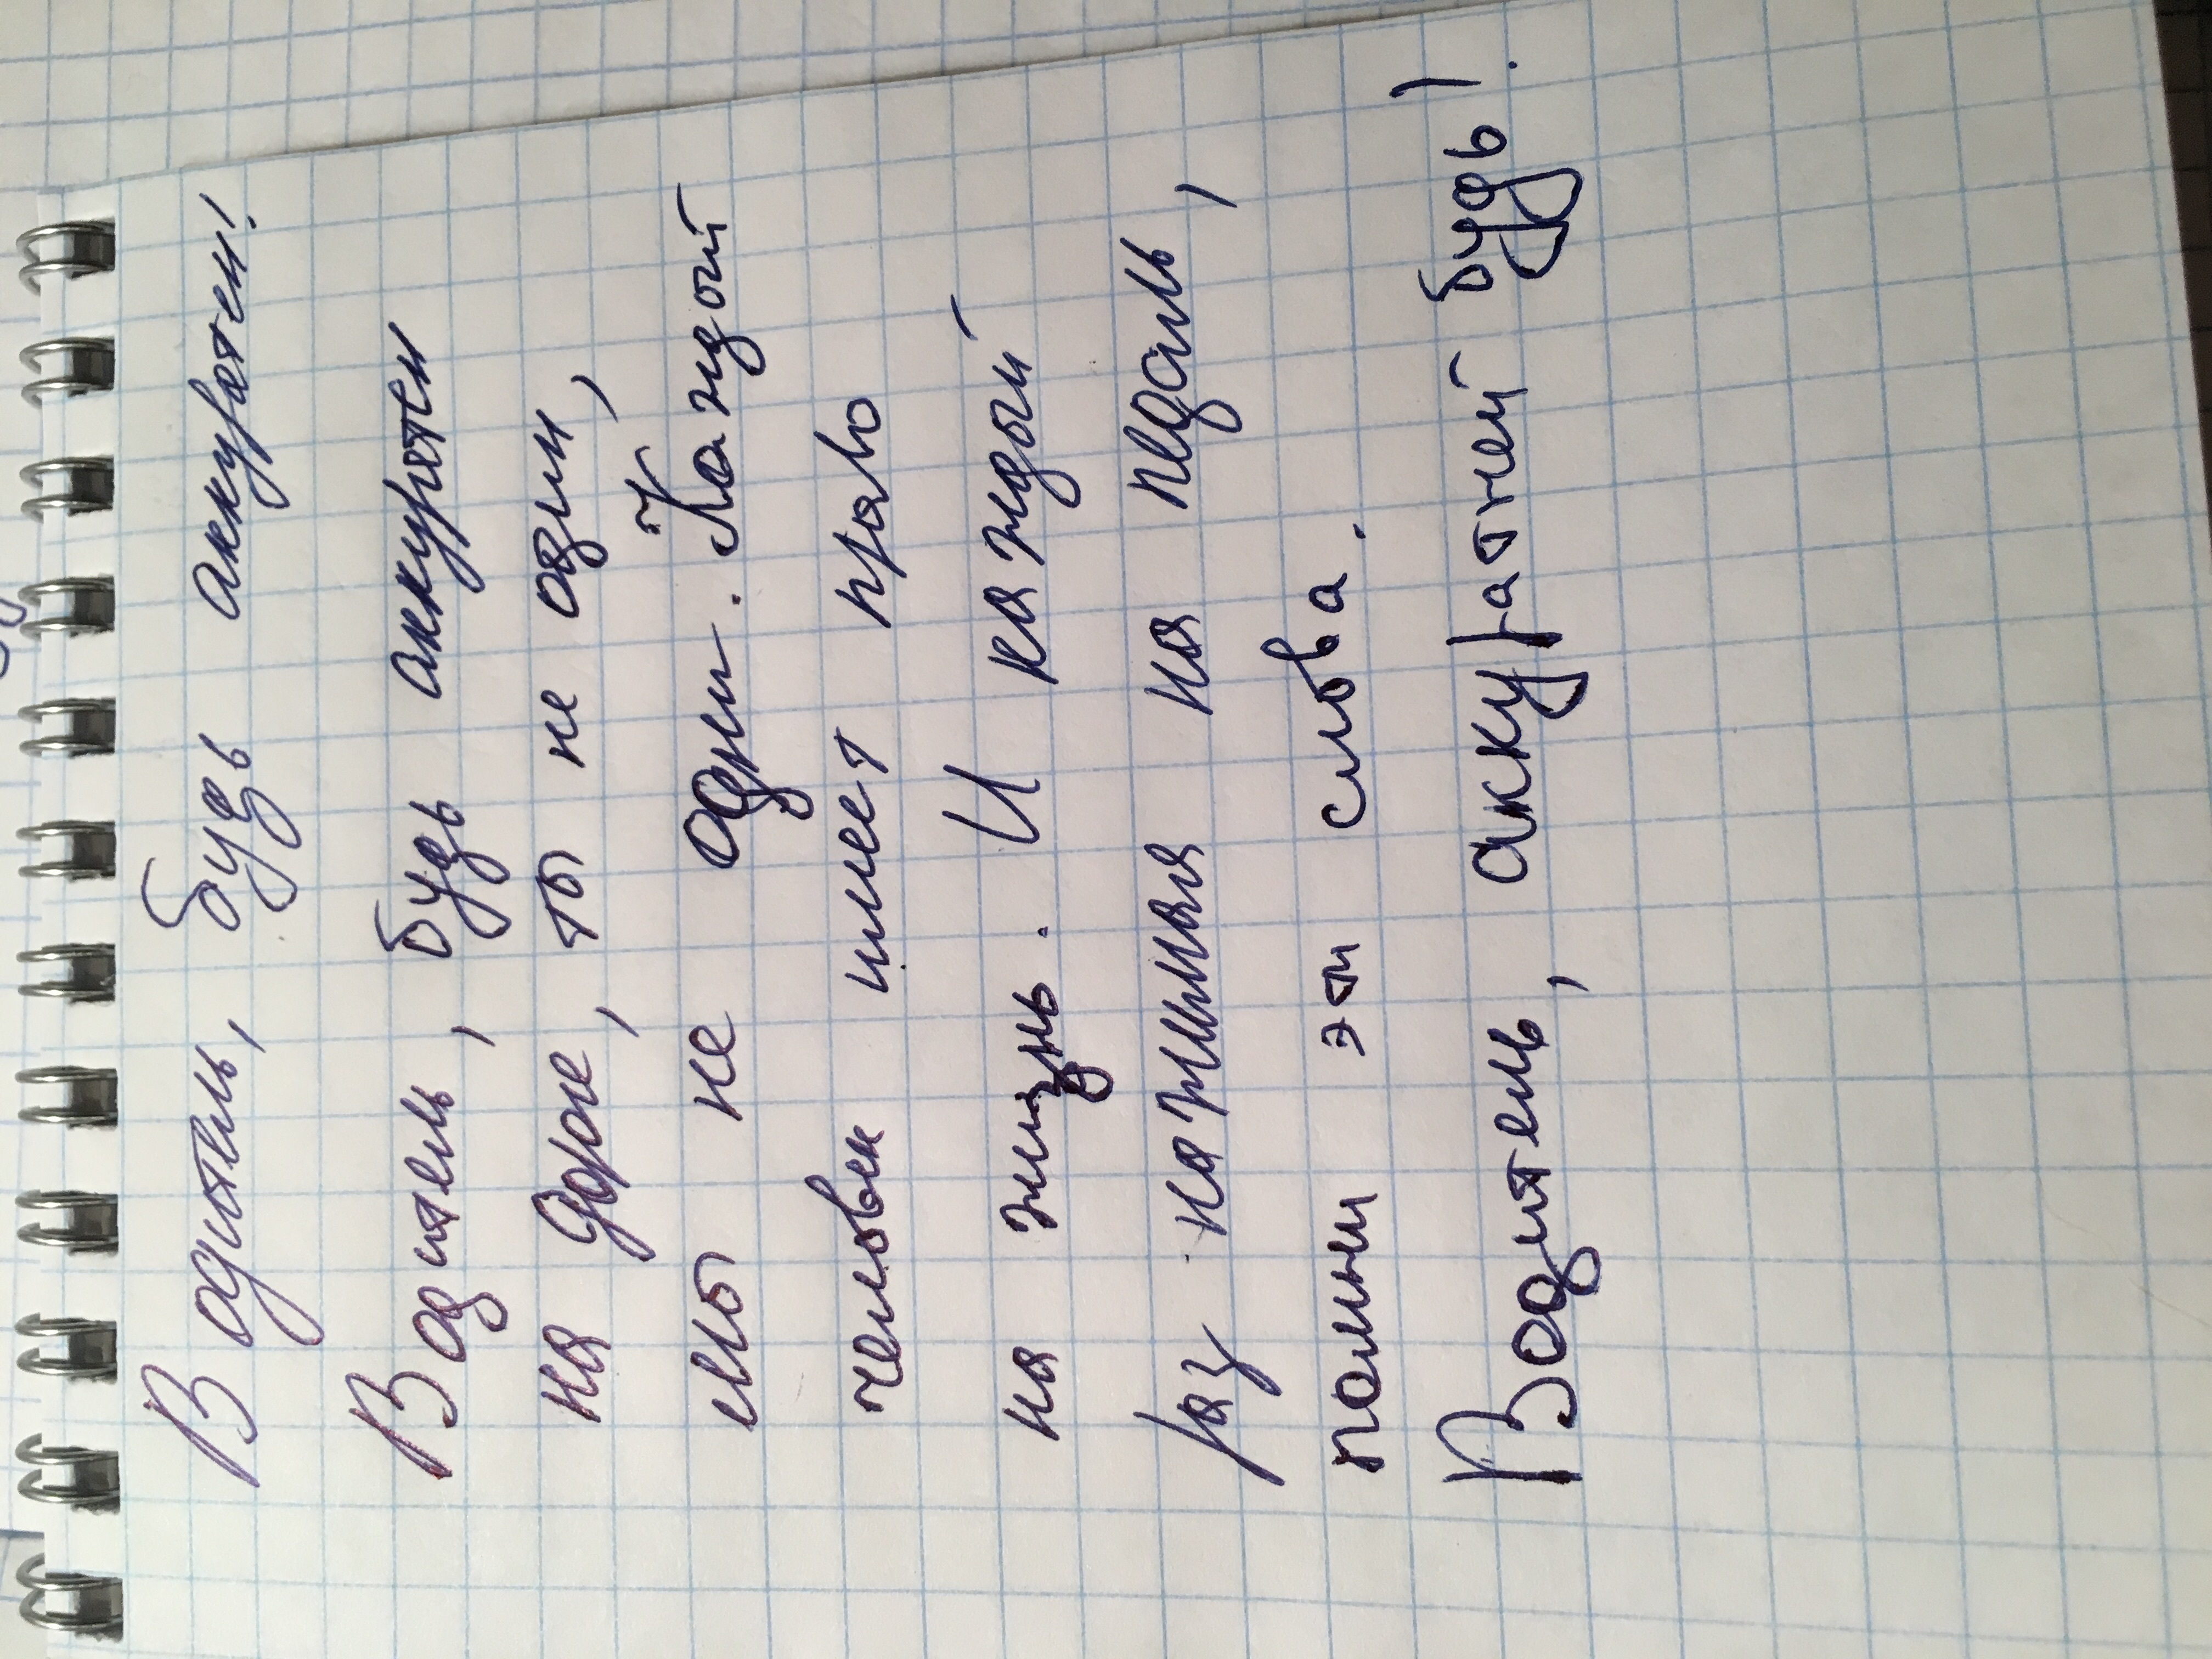 Водитель, будь аккуратен!
Водитель, будь аккуратен
на дороге, ты не один,
мы не одни. Каждой
человек имеет право
на жизнь. И каждый
раз нажимая на педаль,
помни эти слова.
Водитель, аккуратней будь!